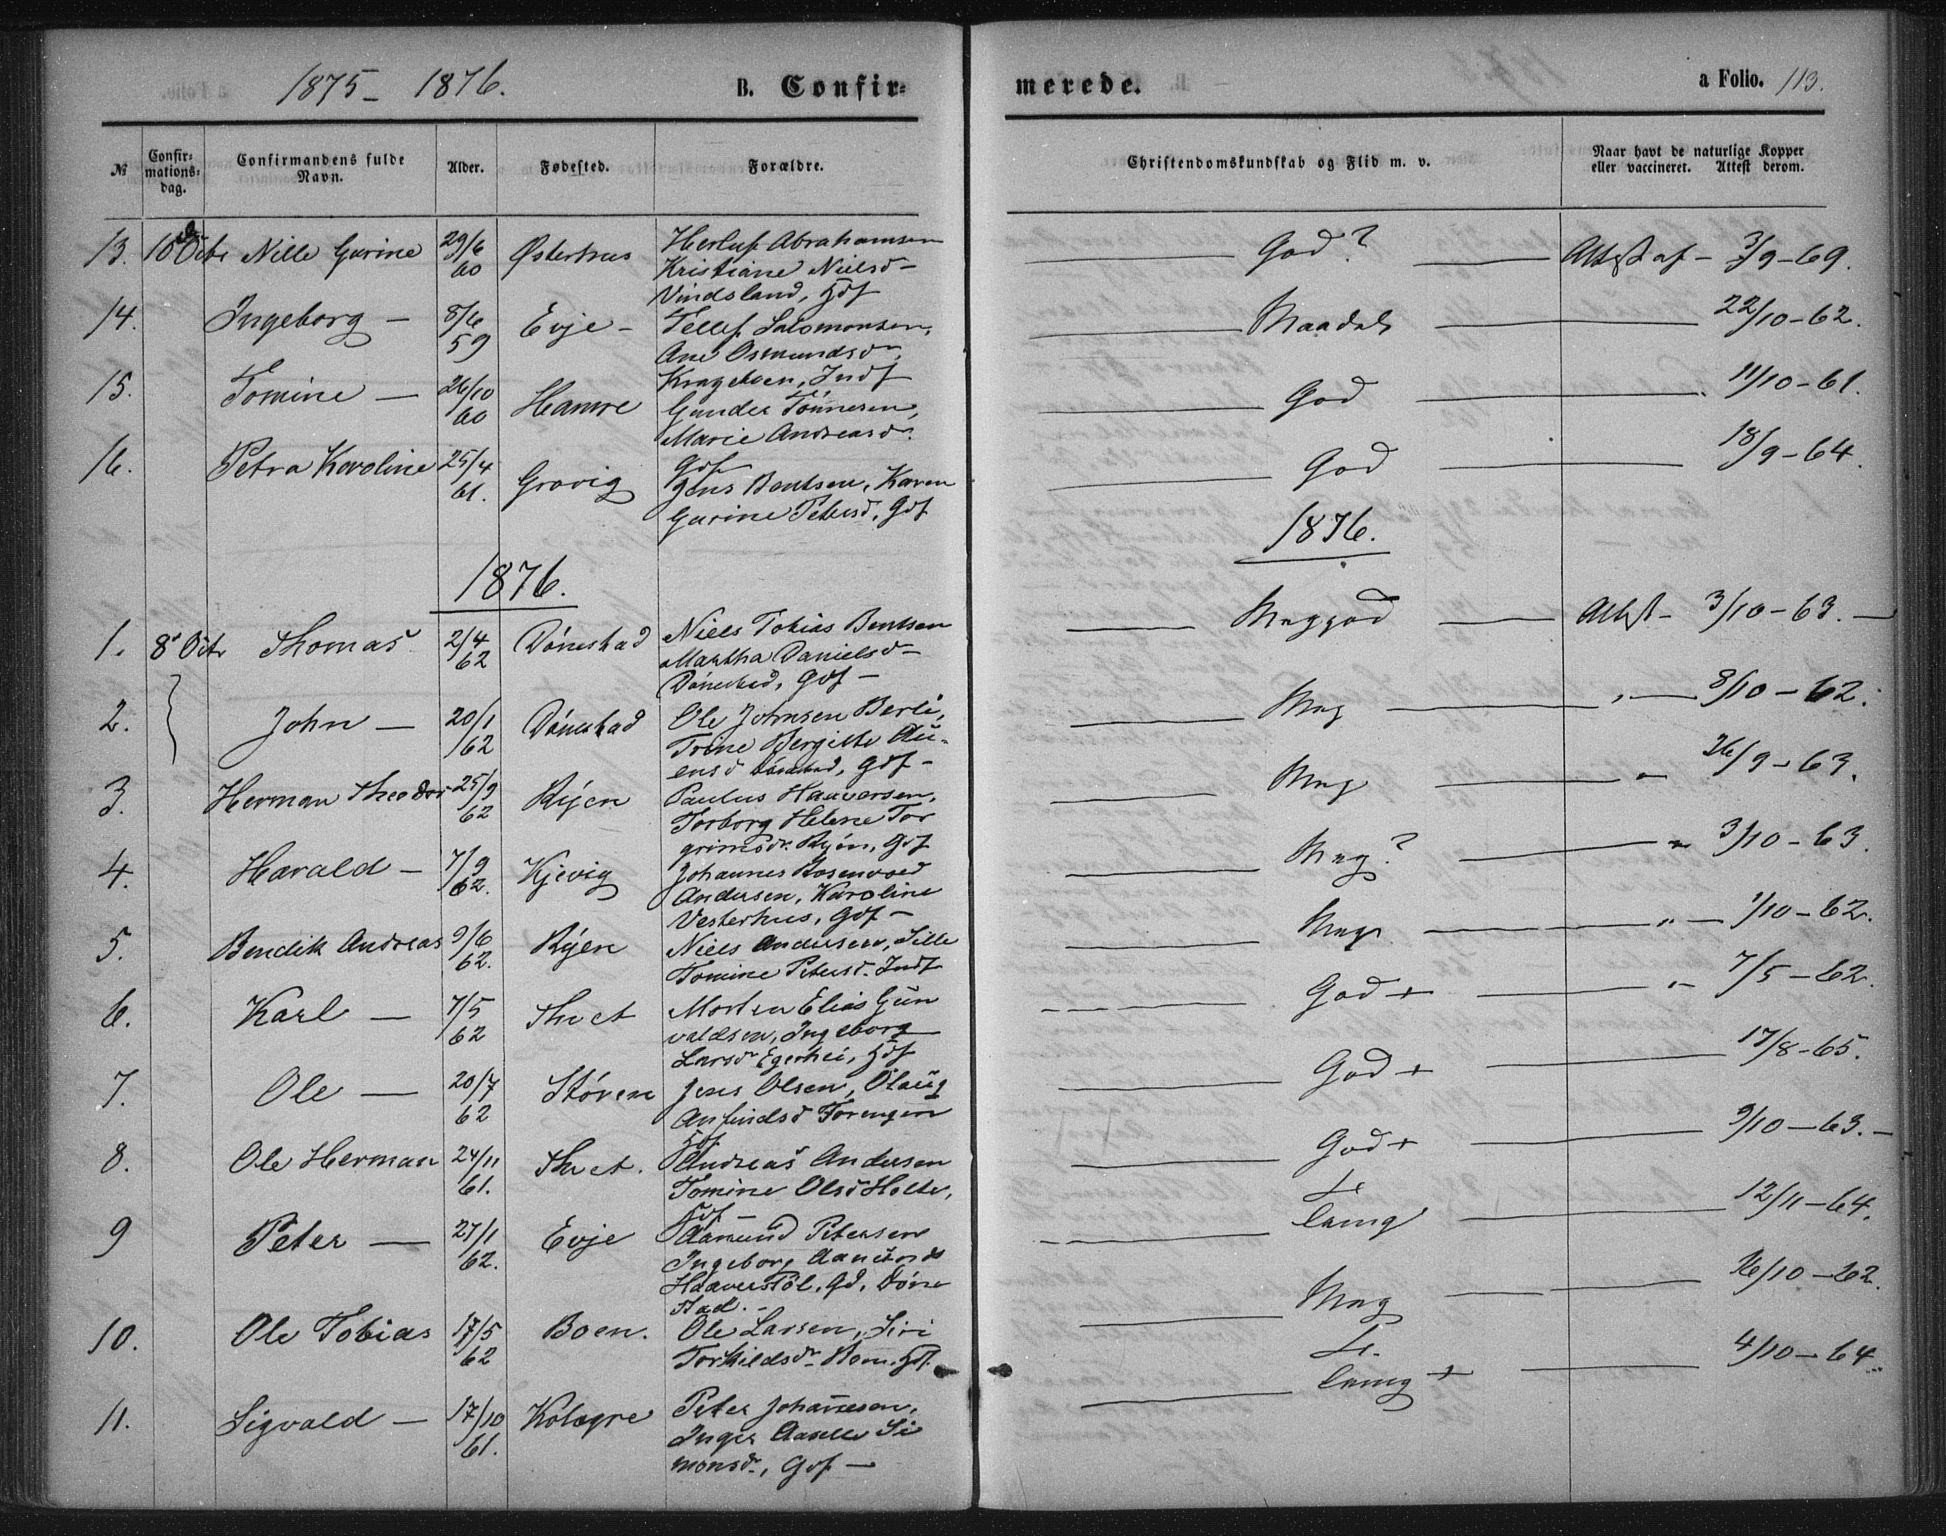 1875 - 1876.
B. Confir=
merede.
a Folio. 113.
№
Confir=
mations=
dag.
Confirmandens fulde
Navn.
Alder.
Fødested.
Forældre.
Christendomskundskab og Flid m. v.
Naar havt de naturlige Kopper
eller vaccineret. Attest derom.
13. 10 Octr Nille Gurine 29/6 60 Østerhus
Herluf Abrahamsen
Kristiane Nielsd -
Vindsland,
God? Attest af - 3/9 - 69.
14. Ingeborg - 8/6 59 Evje -
Tellef Salomonsen,
Ane Osmundsdr.
Krageboen, Indf
Maadel 22/10 - 62.
15. Tomine - 26/10 60 Hamre
Gunder Tønnesen,
Marie Andreasd.
Gdf
God 11/10 - 61.
16. Petra Karoline 25/4 61. Grovig
Jens Bentsen, Karen
Gurine Petersd, Gdf
God 18/9 - 64.
1876.
1876.
1. 8 Octr Thomas 2/4 62 Dønestad
Niels Tobias Bentsen
Martha Danielsd -
Dønestad, Gdf -
Meggod Attest - 3/10 - 63. -
2. John - 20/1 62 Dønestad
Ole Johnsen Berli,
Trine Bergitte Au-
ensd Dønestad, Gdf -
Meg 8/10 - 62.
3. Herman Theodor 25/9 62 Ryen
Paulus Haaversen,
Torborg Helene Tor
grimsdr. Ryen, Gdf
Meg " 26/9 - 63.
4. Harald - 7/9 62. Kjevig
Johannes Rosenvold
Andersen, Karoline
Vesterhus, Gdf -
Meg? " 3/10 - 63.
5. Bendik Andreas 9/6 62. Ryen
Niels Andersen, Sille
Tomine Petersd. Indf
Meg " - 1/10 - 62.
6. Karl - 7/5 62 Thvet
Morten Elias Gun
valdsen, Ingeborg
Larsdr Egerhei,
God + " 7/5 - 62.
7. Ole - 20/7 62 Støven
Jens Olsen, Olaug
Anfindsd
God + 17/8 - 65.
8. Ole Herman 24/11 61. Thvet.
Andreas Andersen
Tomine Olsd Holte,
God + 9/10 - 63. -
9 Peter - 27/1 62. Evje
Aamund Petersen
Ingeborg Aamunds
Haaverstöl, Gd, Døne
stad. -
T.
temg 12/11 - 64.
10. Ole Tobias 17/5 62 Boen.
Ole Larsen, Siri
Torkildsdr Boen.
Meg 16/10 - 62.
11. Sigvald - 17/10 61.
Peter Johannesen,
Inger Aaselle Si
monsdr., Gdf -
T.
temg + 4/10 - 64.